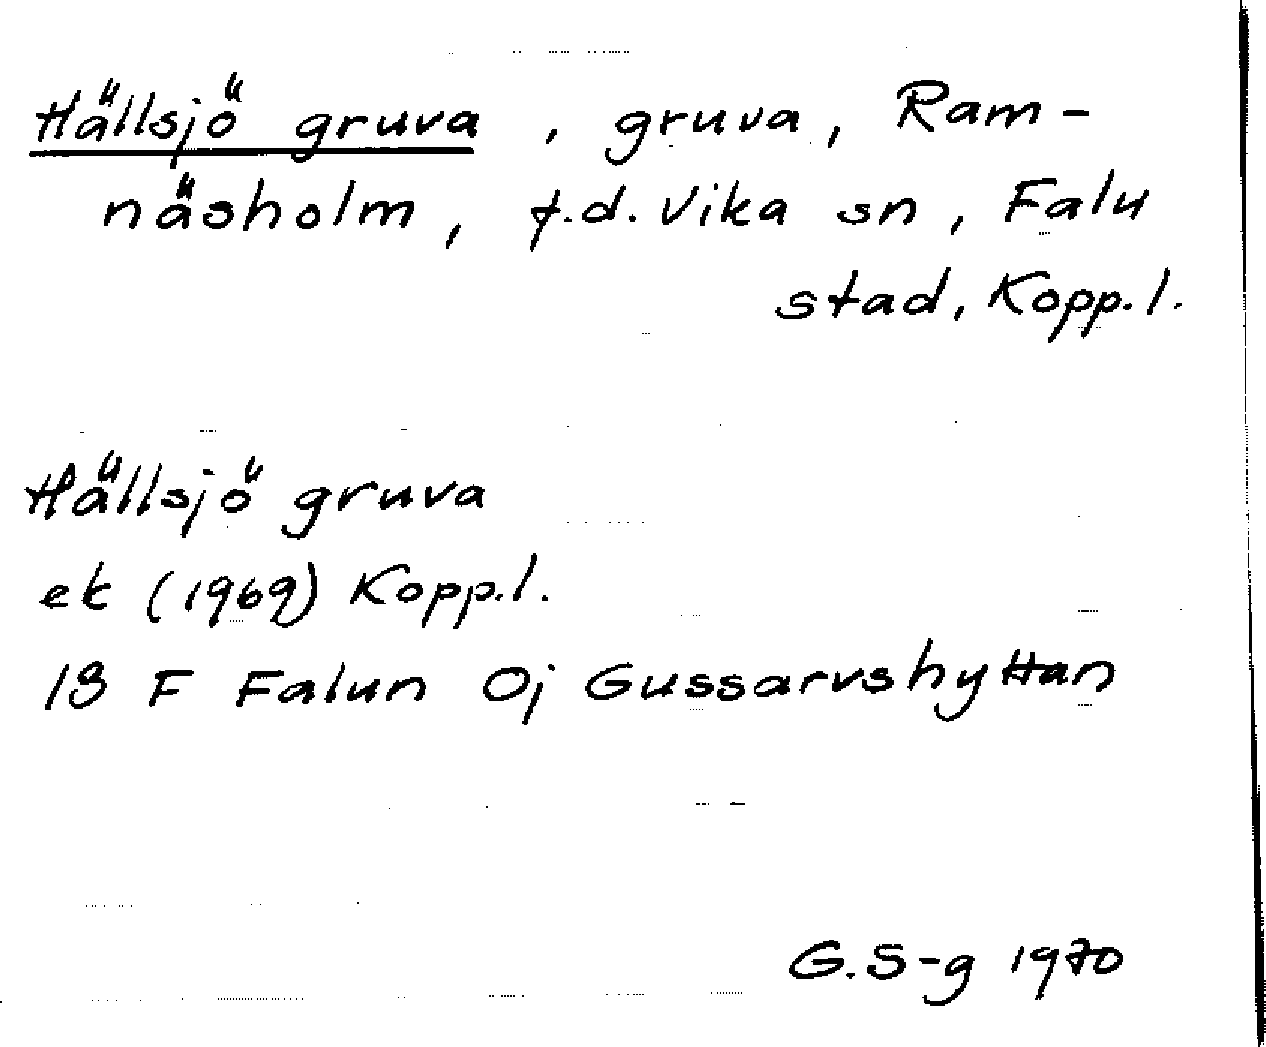 Hällsjö gruva, gruva, Ram-
näsholm, f.d. Vika sn, Falu
stad, Kopp.l.
Hällsjö gruva
ek (1969) Kopp.l.
13 F Falun 0j Gussarvshyttan
G.S-g 1970